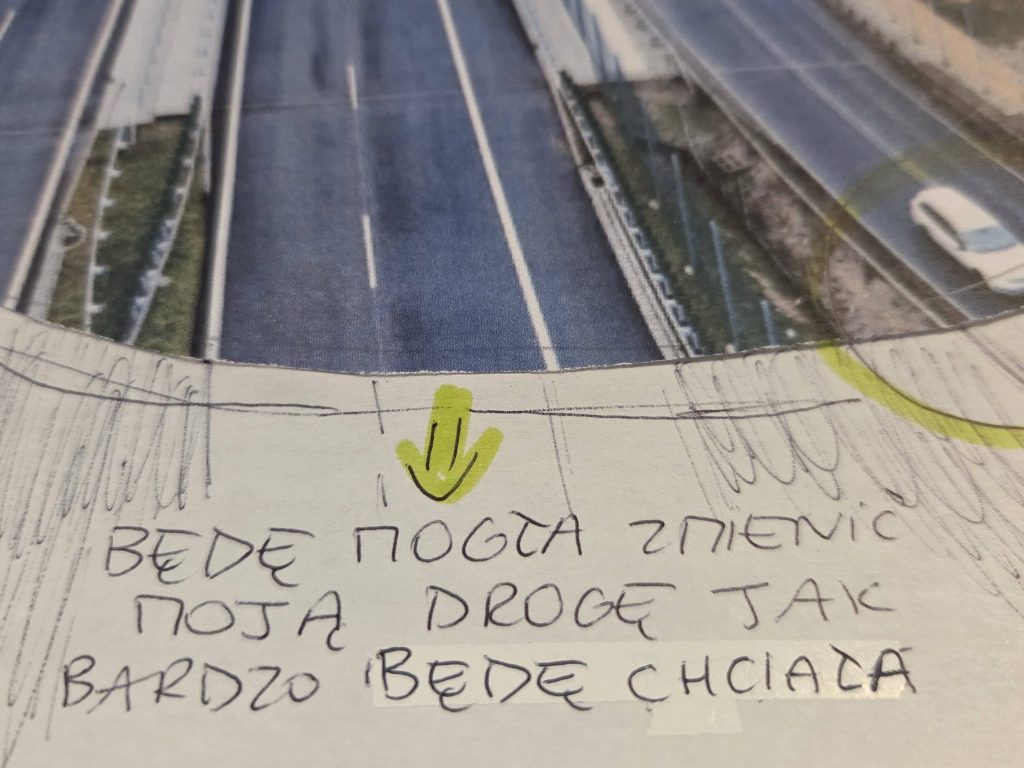 BĘDĘ MOGŁA ZMIENIĆ
MOJĄ DROGĘ JAK
BARDZO BĘDĘ CHCIAŁA